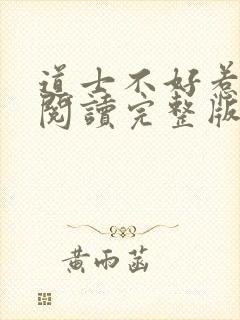 道士不好惹
閱讀完整版
黃雨菡